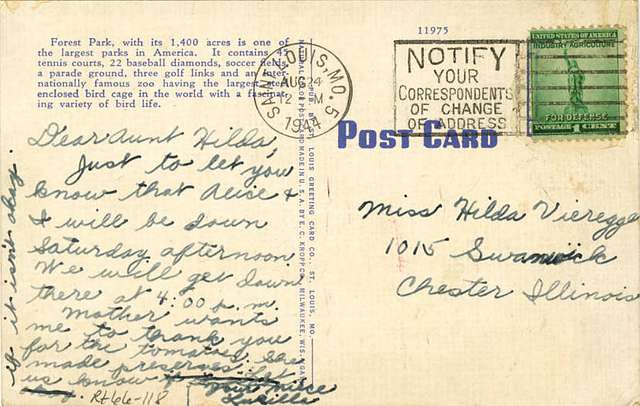 Forest Park, with its 1,400 acres is one of
the largest parks in America. It contains 45
tennis courts, 22 baseball diamonds, soccer fields,
a parade ground, three golf links and an inter-
nationally famous zoo having the largest
enclosed bird cage in the world with a fascinat-
ing variety of bird life.
11975
SAINT LOUIS, MO. 5
AUG 24
12 M
1944
NOTIFY
YOUR
CORRESPONDENTS
OF CHANGE
OF ADDRESS
UNITED STATES OF AMERICA
INDUSTRY AGRICULTURE
FOR DEFENSE
POSTAGE 1 CENT
POST CARD
Dear Aunt Hilda,
Just to let you
know that Alice &
I will be down
Saturday afternoon.
We will get down
there at 4:00 p.m.
Mother wants
me to thank you
for the tomatoes. She
made preserves. Let
us know
if it isn't okay.
Your niece
Lucille
R466-118
Miss Hilda Vieregge
1015 Swanwick
Chester Illinois
ST. LOUIS GREETING CARD CO., ST. LOUIS, MO.
MADE IN U.S.A. BY E. C. KROPP CO., MILWAUKEE, WIS.